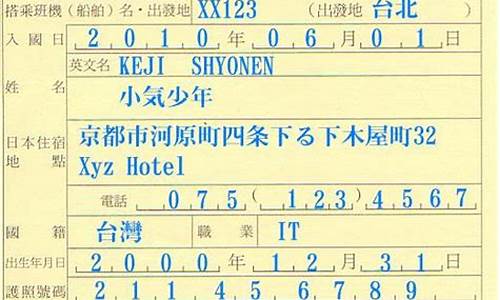 搭乘班機(船舶)名・出發地 XX123 (出發地 台北 )
入國日 2010年06月01日
英文名 KEJI SHYONEN
姓名 小気少年
日本住宿地點 京都市河原町四条下る下木屋町32
Xyz Hotel
電話 075(123)4567
國籍 台灣 職業 IT
出生年月日 2000年12月31日
護照號碼 211456789